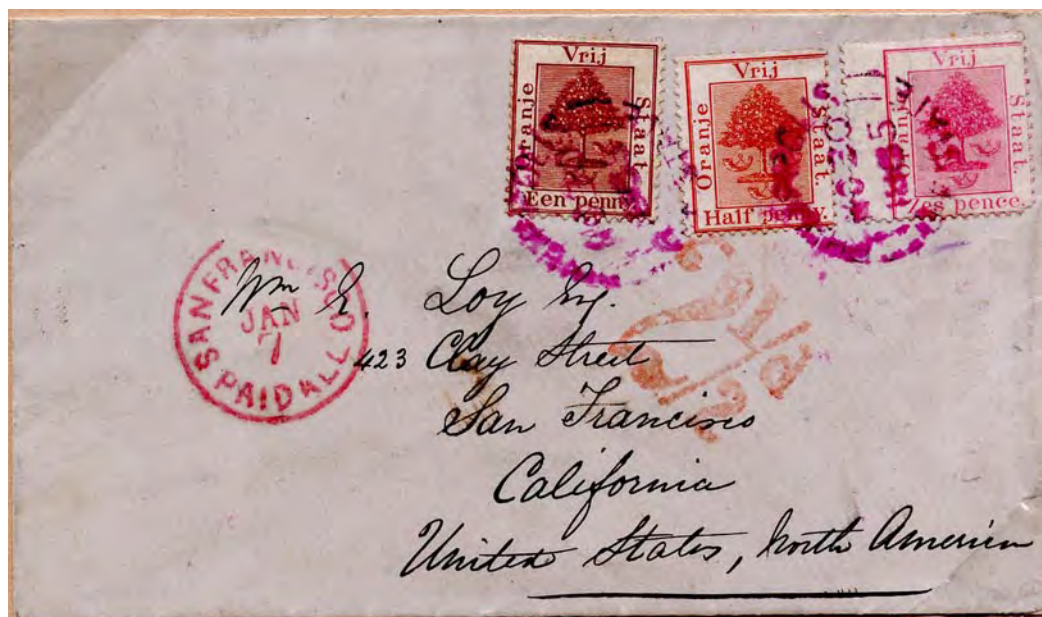 Vrij
Oranje
Staat.
Een penny.
Vrij
Oranje
Staat.
Half penny.
Vrij
Oranje
Staat.
Zes pence.
SAN FRANCISCO
JAN
7
PAID ALL
Wm E. Loy Esq.
423 Clay Street
San Francisco
California
United States, North America